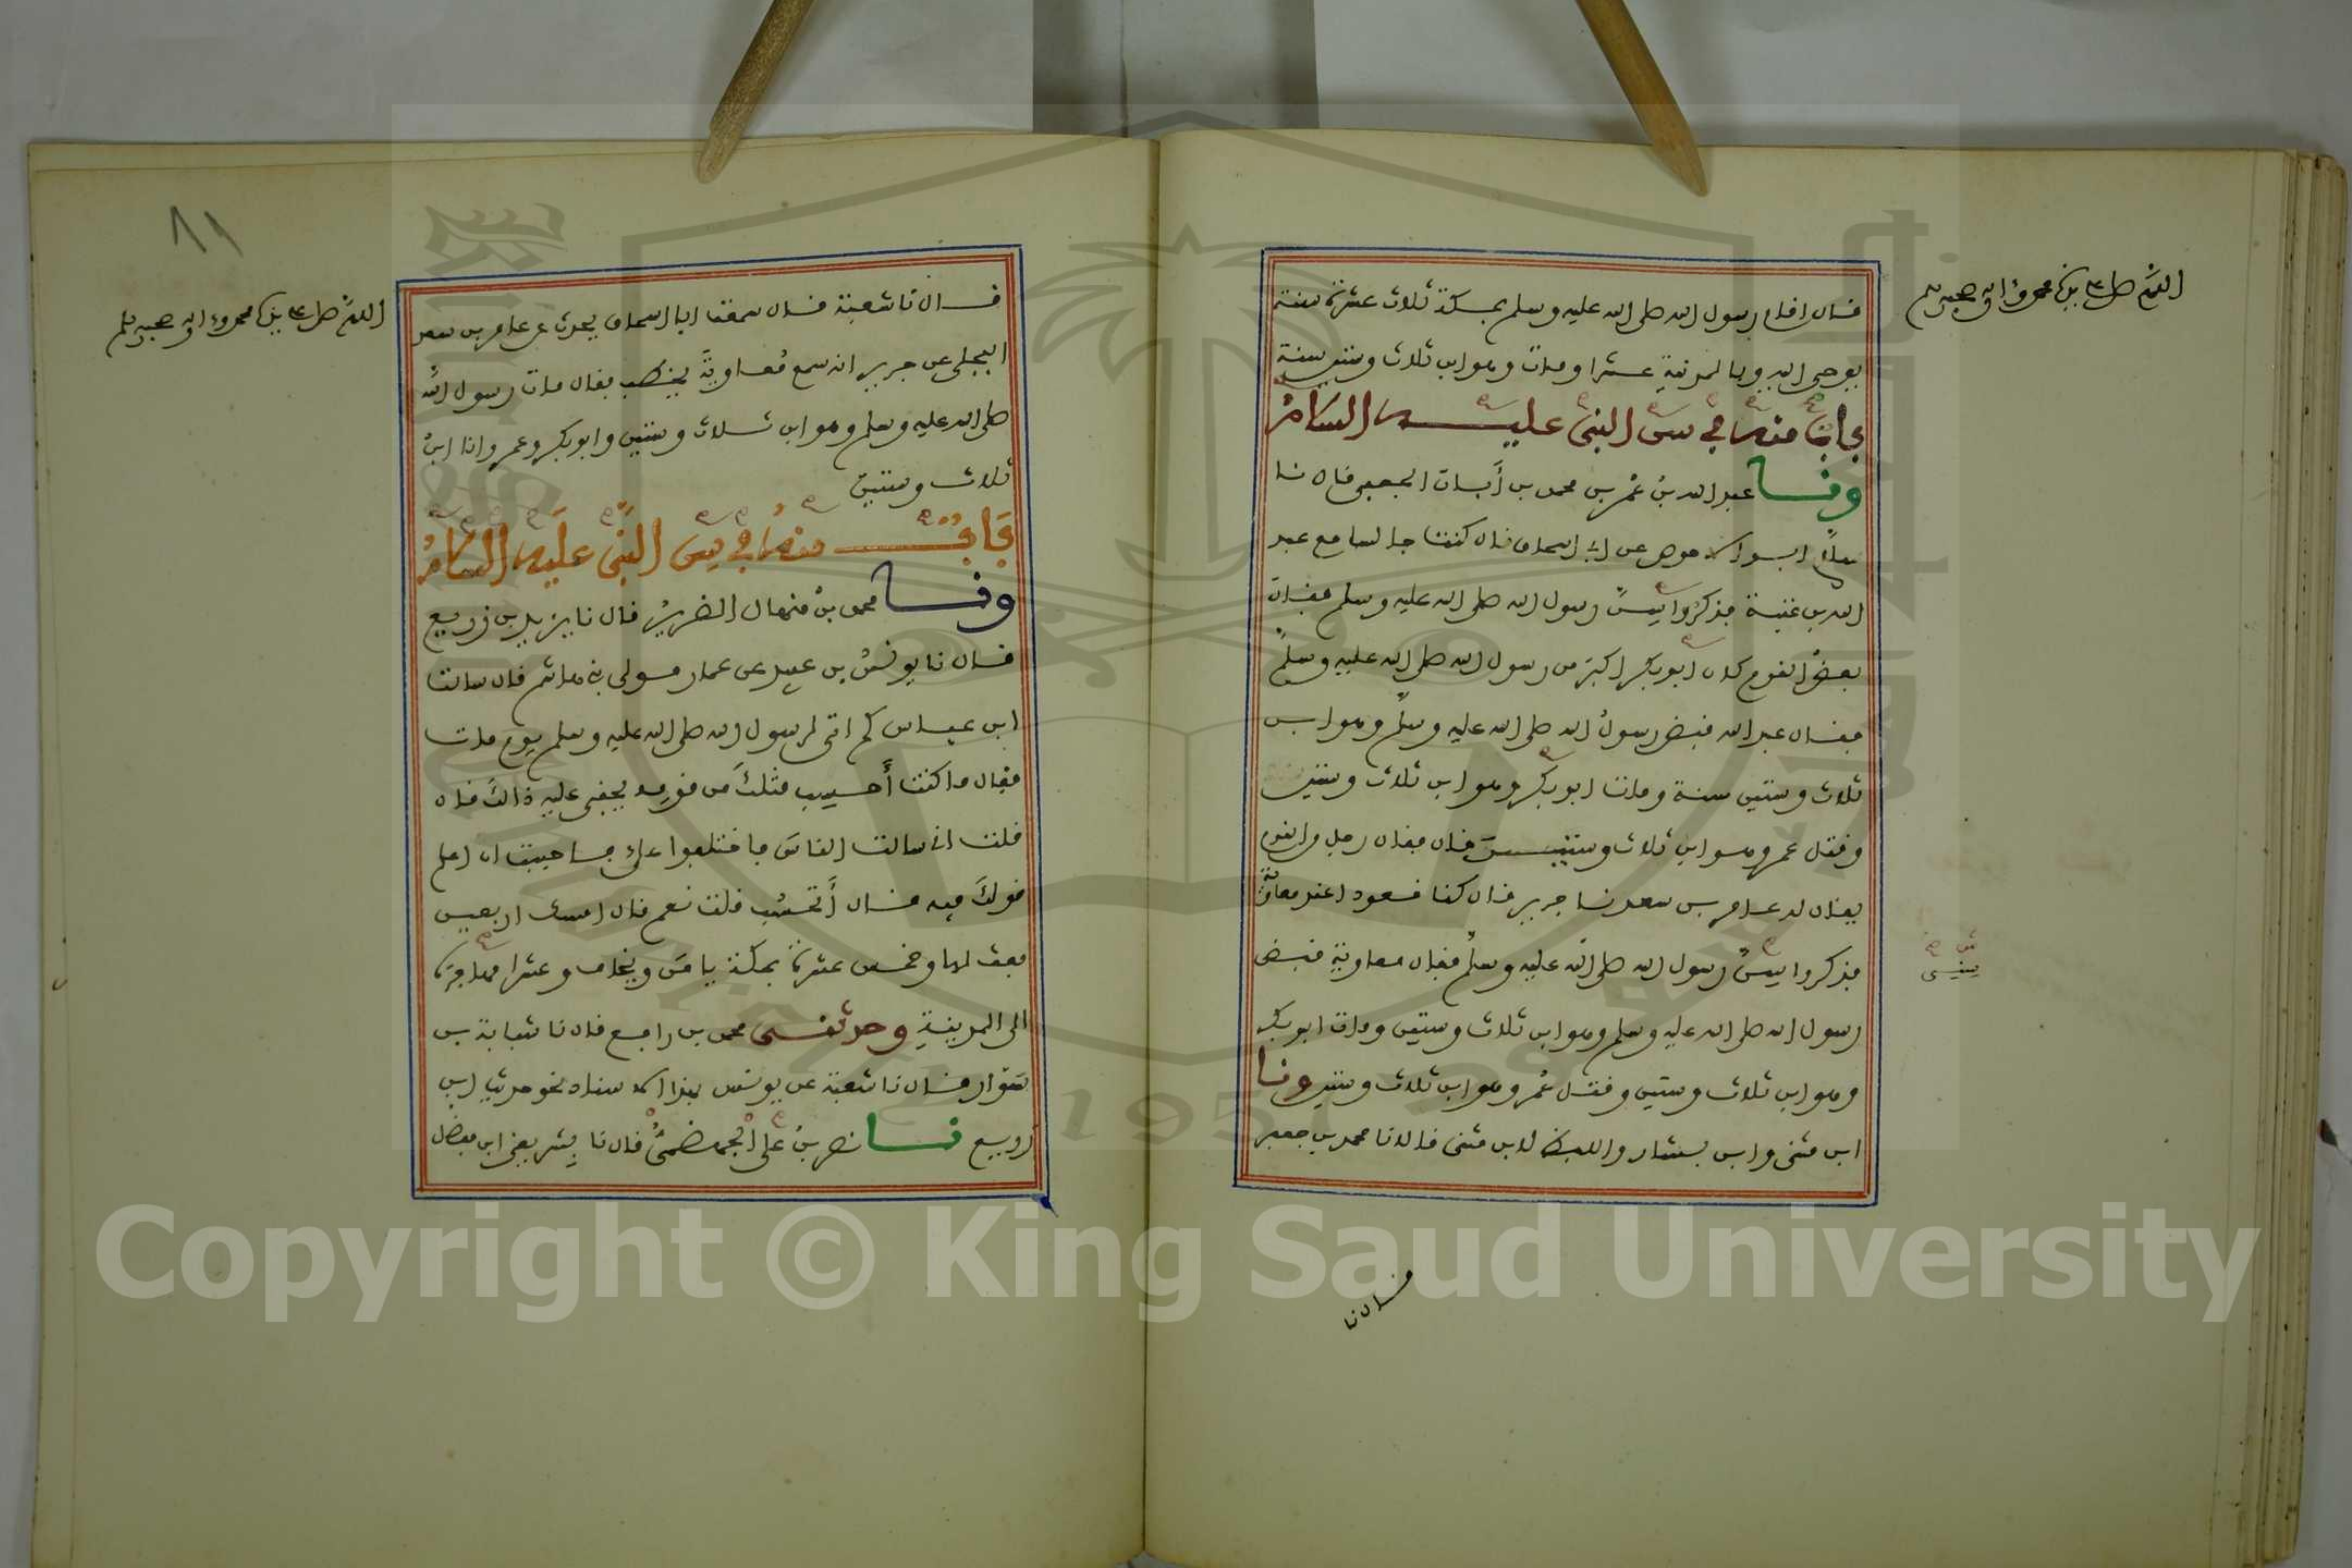 اللهم صل على سيدنا محمد وءاله وصحبه وسلم
قال اقام رسول الله صلى الله عليه وسلم بمكة ثلاث عشرة سنة
يوحى اليه وبالمدينة عشرا ومات وهو ابن ثلاث وستين سنة
باب منه في سن النبي عليه السلام
ونا عبد الله بن عمر بن محمد بن أبان الجعفي قال نا
سلام ابو الاحوص عن ابي اسحاق قال كنت جالسا مع عبد
الله بن عتبة فذكروا سن رسول الله صلى الله عليه وسلم فقال
بعض القوم كان ابو بكر اكبر من رسول الله صلى الله عليه وسلم
فقال عبد الله قبض رسول الله صلى الله عليه وسلم وهو ابن
ثلاث وستين سنة ومات ابو بكر وهو ابن ثلاث وستين
وقتل عمر وهو ابن ثلاث وستين قال فقال رجل من القوم
يقال له عامر بن سعد نا جرير قال كنا قعودا عند معاوية
فذكروا سن رسول الله صلى الله عليه وسلم فقال معاوية قبض
رسول الله صلى الله عليه وسلم وهو ابن ثلاث وستين ومات ابو بكر
وهو ابن ثلاث وستين وقتل عمر وهو ابن ثلاث وستين ونا
ابن مثنى وابن بشار واللفظ لابن مثنى قالا نا محمد بن جعفر
سني
قال نا
٨١
اللهم صل على سيدنا محمد وءاله وصحبه وسلم
قال نا شعبة قال سمعت ابا اسحاق يحدث عن عامر بن سعد
البجلي عن جرير انه سمع معاوية يخطب فقال مات رسول الله
صلى الله عليه وسلم وهو ابن ثلاث وستين وابو بكر وعمر وانا ابن
ثلاث وستين
باب منه في سن النبي عليه السلام
ونا محمد بن منهال الضرير قال نا يزيد بن زريع
قال نا يونس بن عبيد عن عمار مولى بني هاشم قال سالت
ابن عباس كم اتى لرسول الله صلى الله عليه وسلم يوم مات
فقال ما كنت أحسب مثلك من قومه يخفى عليه ذالك قال
قلت اني سالت الناس فاختلفوا علي فاحببت ان اعلم
قولك فيه قال أتحسب قلت نعم قال امسك اربعين
بعث لها وخمس عشرة بمكة يامن ويخاف وعشرا مهاجرة
الى المدينة وحدثني محمد بن رافع قال نا شبابة بن
سوار قال نا شعبة عن يونس بهذا الاسناد نحو حديث ابن
زريع نا نصر بن علي الجهضمي قال نا بشر يعني ابن مفضل
Copyright © King Saud University
1957